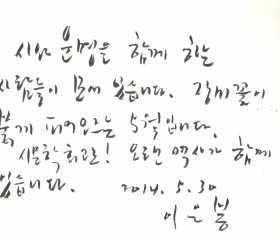 시와 운명을 함께 하는
사람들이 모여 있습니다. 장미꽃이
붉게 피어오르는 5월입니다.
시문학회관! 오랜 역사가 함께
있습니다. 2014. 5. 30
이은봉